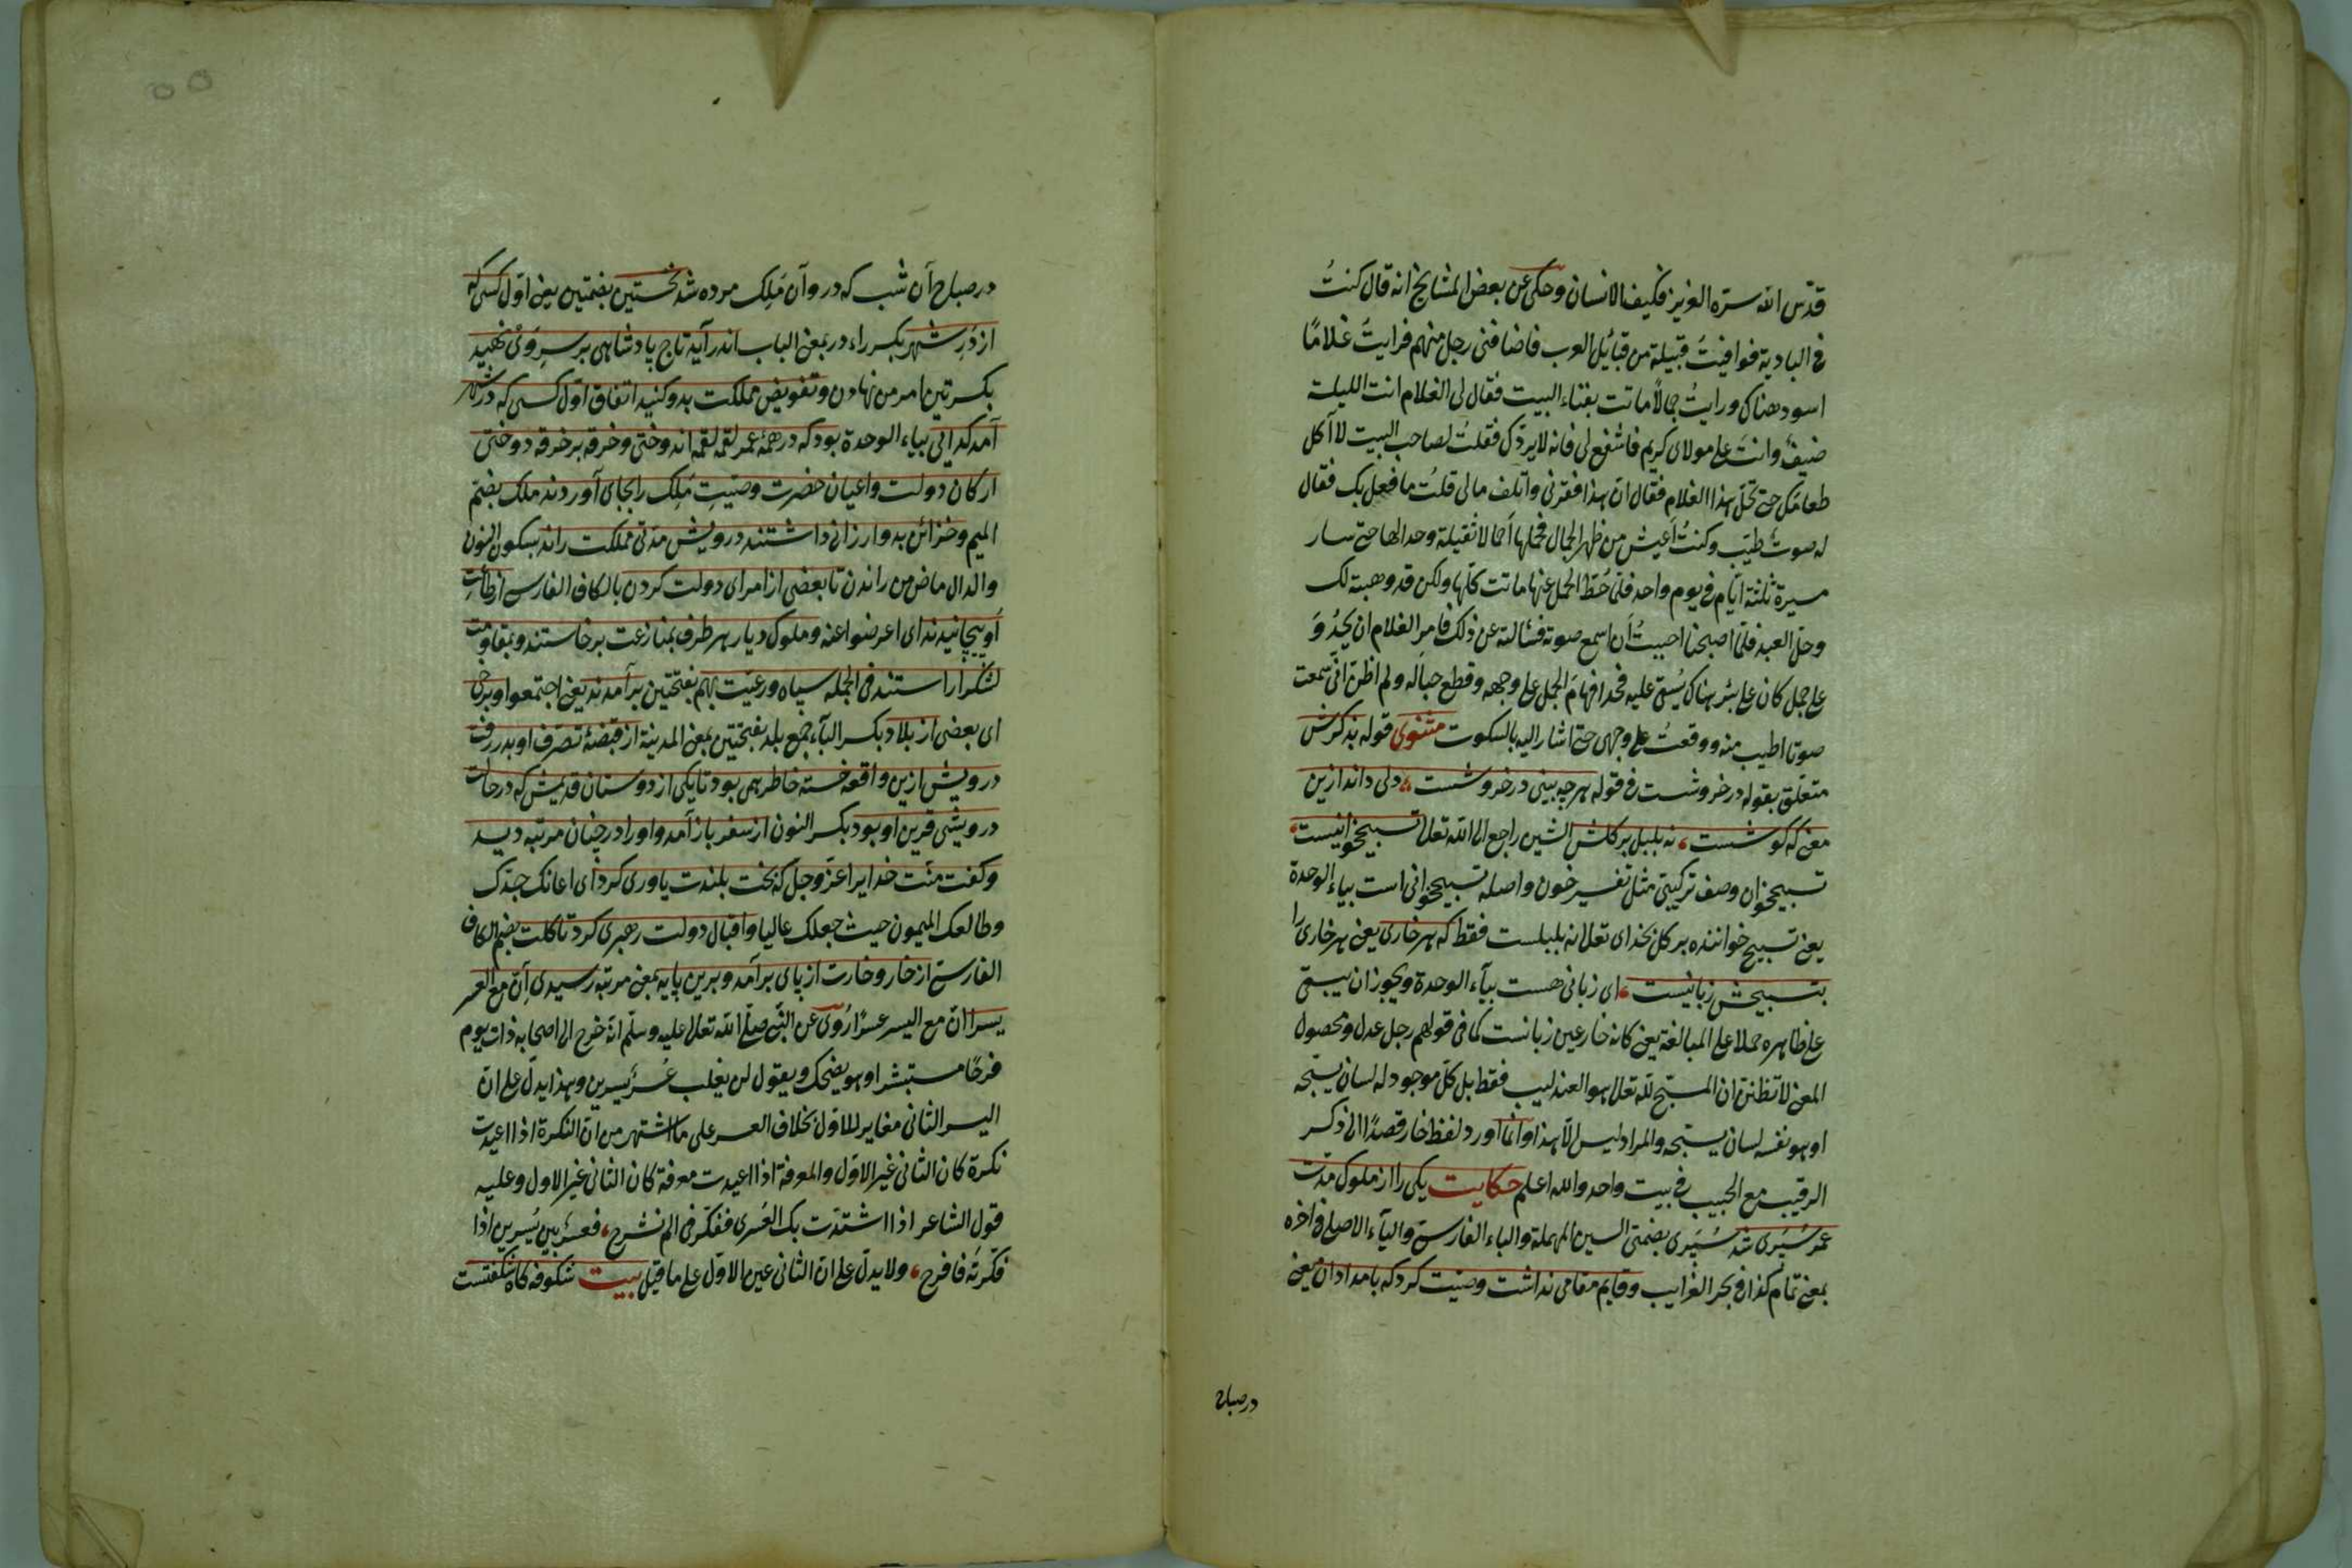 قدّس الله سرّه العزيز فكيف الانسان وحكى عن بعض المشايخ انه قال كنتُ
فى البادية فوافيتُ قبيلة من قبائل العرب فاضافنى رجل منهم فرايتُ غلامًا
اسود هناك ورايتُ جمالًا ماتت بفناء البيت فقال لى الغلام انت الليلة
ضيفٌ وانت على مولاى كريم فاشفع لى فانه لا يردّك فقلتُ لصاحب البيت لا آكل
طعامك حتى تحلّ هذا الغلام فقال انّ هذا افقرنى واتلف مالى قلتُ ما فعل بك فقال
له صوتٌ طيّب وكنتُ اَعيش من ظهر الجمال فحملها احمالا ثقيلة وحدا لها حتى سار
مسيرة ثلثة ايّام فى يوم واحد فلمّا حُطّ الحمل عنها ماتت كلّها ولكن قد وهبته لك
وحلّ العبد فلمّا اصبحنا احببتُ اَن اسمع صوته فسألته عن ذلك فامر الغلام ان يَحدُوَ
على جمل كان على بئر هناك يُستقى عليه فحدا فهامَ الجمل على وجهه وقطع حباله ولم اظنّ انّى سمعت
صوتا اطيب منه ووقعتُ على وجهى حتى اشار اليه بالسكوت مثنوى قوله بذكرش
متعلّق بقوله در خروشست فى قوله هرچه بينى در خروشست، دلى داند ازين
معنى كه كوشست، نه بلبل بر كلش الشين راجع الى الله تعالى تسبيح خوانيست،
تسبيح خوان وصف تركيبىّ مثل تفسير خون واصله تسبيح خوانى است بياء الوحدة
يعنى تسبيح خواننده بر كل بخداى تعالى نه بلبلست فقط كه هر خارى يعنى هر خارى را
بتسبيحش زبانيست، اى زبانى هست بياء الوحدة ويجوز ان يبقى
على ظاهره حملا على المبالغة يعنى كانه خار عين زبانست كما فى قولهم رجل عدل ومحصول
المعنى لا تظننّ ان المسبّح لله تعالى هو العندليب فقط بل كلّ موجود له لسان يسبّحه
او هو نفسه لسان يسبّحه والمراد ليس الّا هذا وانّما اورد لفظ خار قصدًا الى ذكر
الرقيب مع الحبيب فى بيت واحد والله اعلم حكايت يكى را از ملوك مدّت
عمر سُپَرى شد سُپَرى بضمّتى السين المهملة والباء الفارسىّ والياء الاصلى فى اخره
بمعنى تمام كذا فى بحر الغرايب وقايم مقامى نداشت وصيّت كرد كه بامدادان يعنى
در صباح
در صباح آن شب كه در و آن مَلِك مرده شد نخستين بضمّتين يعنى اوّل كسى كه
از دَرِ شهر بكسر راء در بمعنى الباب اندر آيد تاج پادشاهى بر سرِ وَىْ نهيد
بكسرتين امر من نهادن وتفويض مملكت بدو كنيد اتفاق اوّل كسى كه در شهر
آمد كدايى بياء الوحدة بود كه در همهٔ عمر لقمه لقمه اندوختى وخرقه بر خرقه دوختى
اركان دولت واعيان حضرت وصيّتِ مَلِك را بجاى آوردند ملك بضمّ
الميم وخزائن بدو ارزانى داشتند درويش مدّتى مملكت راند بسكون النون
والدال ماض من راندن تا بعضى از امراى دولت كردن بالكاف الفارسى از طاعتِ
او بپيچانيدند اى اعرضوا عنه وملوك ديار هر طرف بمنازعت برخاستند وبمقاومت
لشكر آراستند فى الجمله سپاه ورعيّت بهم بفتحتين برآمدند يعنى اجتمعوا وبرخى
اى بعضى از بلاد بكسر الباء جمع بلد بفتحتين بمعنى المدينة از قبضهٔ تصرّف او بدر رفت
درويش ازين واقعه خسته خاطر همى بود تا يكى از دوستان قديمش كه در حالت
درويشى قرين او بود بكسر النون از سفر باز آمد واو را در چنان مرتبه ديد
وكفت منّت خدايرا عزّ وجلّ كه بخت بلندت ياورى كرد اى اعانك جدّك
وطالعك الميمون حيث جعلك عاليا واقبال دولت رهبرى كرد تا كلت بضم الكاف
الفارسىّ از خار وخارت از پاى برآمد وبرين پايه بمعنى مرتبه رسيدى اِنّ مع العسر
يسرا انّ مع اليسر عسرًا رُوى عن النّبى صلّى الله تعالى عليه وسلّم انّه خرج الى اصحابه ذات يوم
فرحًا مستبشرا وهو يضحك ويقول لن يغلب عُسرٌ يسرين وهذا يدلّ على انّ
اليسر الثانى مغاير للاوّل بخلاف العسر على ما اشتهر من انّ النكرة اذا اعيدت
نكرة كان الثانى غير الاوّل والمعرفة اذا اعيدت معرفة كان الثانى غير الاول وعليه
قول الشاعر اذا اشتدّت بك العُسرى ففكّر فى الم نشرح، فعسرٌ بين يُسرين اذا
فكّرته فافرح، ولا يدلّ على انّ الثانى عين الاوّل على ما قيل بيت شكوفه كاه شكفتست